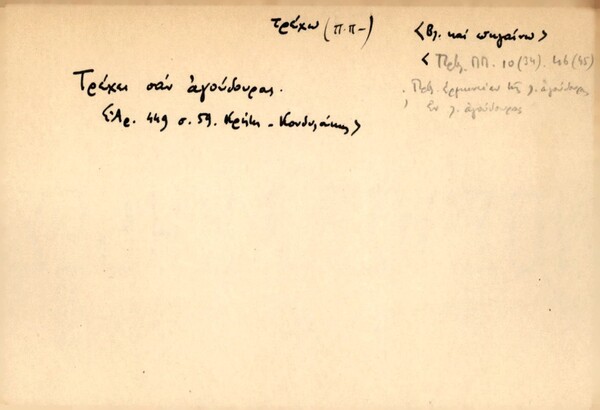 τρέχω (Π.Π-)
<Βλ. καί πηγαίνω>
< Πρβλ. ΠΠ. 10 (34). 46 (45)
Πρβλ. ἑρμηνείαν τῆς λ. ἀγούδουρας
ἐν λ. ἀγούδουρας
Τρέχει σάν ἀγούδουρας.
<Ἀρ. 449 σ. 59. Κρήτη - Κονδυλάκης>